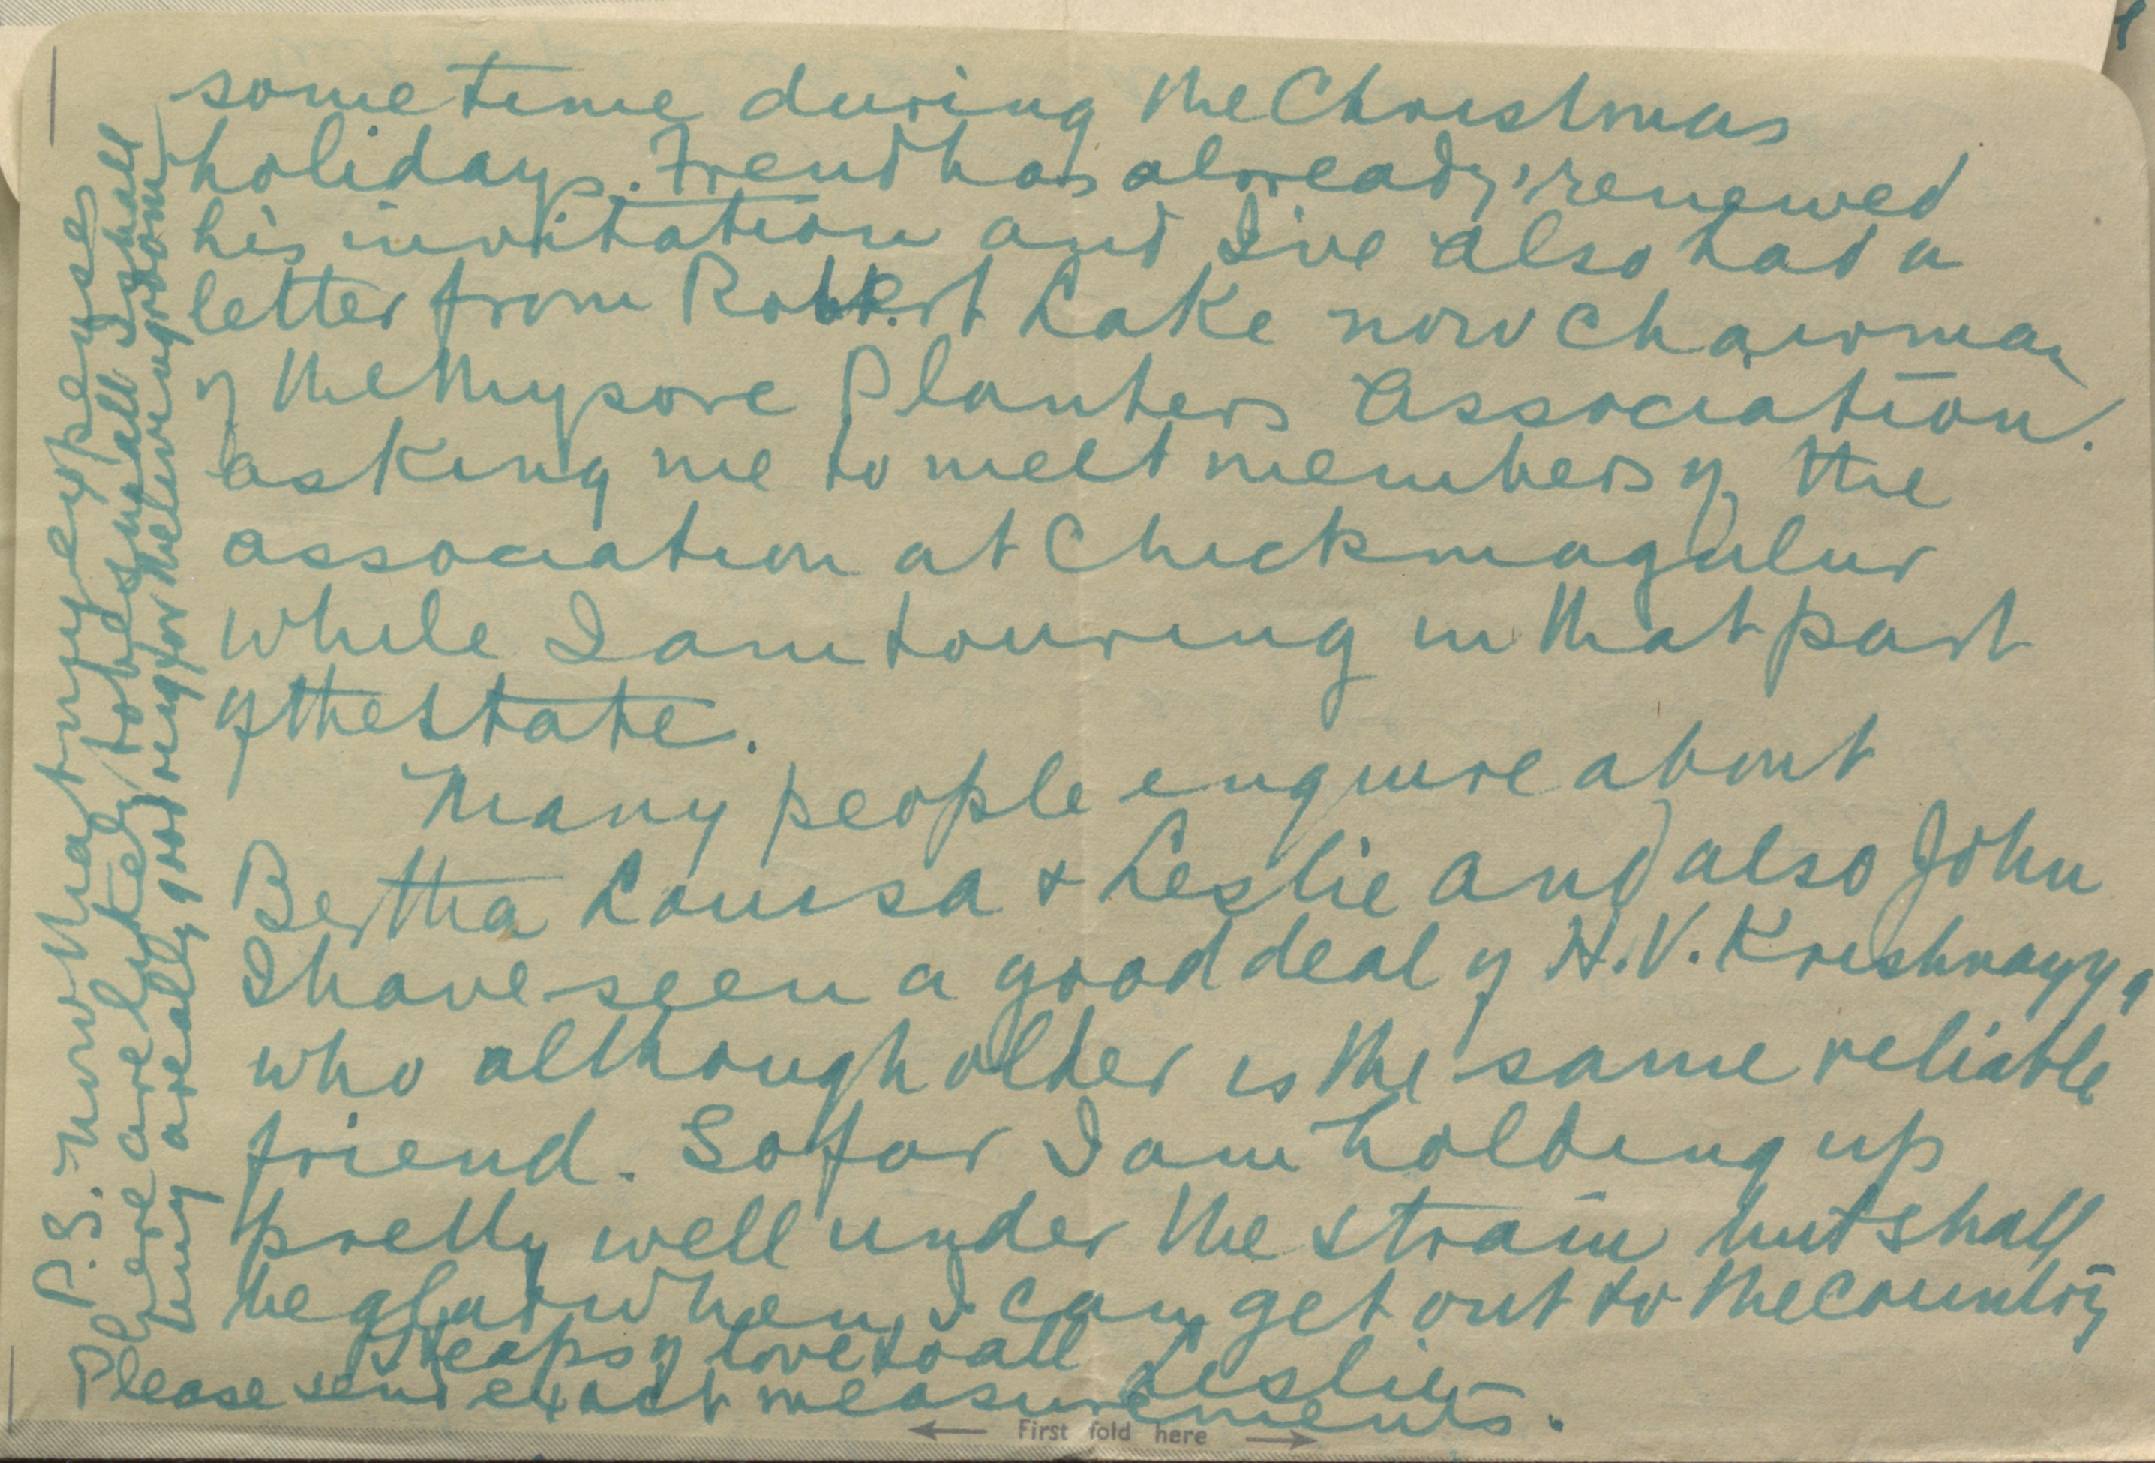 sometime during the Christmas
holidays. Frend has already renewed
his invitation and I've also had a
letter from Robert Lake now Chairman
of the Mysore Planters Association.
asking me to meet members of the
association at Chickmagalur
while I am touring in that part
of the state.
Many people enquire about
Bertha Louisa & Leslie and also John
I have seen a good deal of H.V. Krishnayya,
who although older is the same reliable
friend. So far I am holding up
pretty well under the strain but shall
be glad when I can get out to the country
Heaps of love to all
Leslie
P.S. Now that my expenses
here are likely to be small I shall
buy a really good rug for the living room
Please send exact measurements.
First fold here